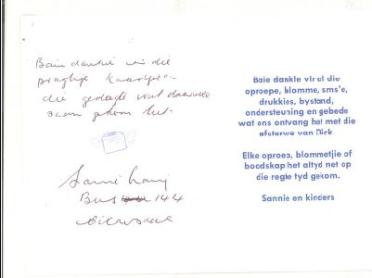 Baie dankie vir die
pragtige
die gedagte wat daarmee
saam gekom het.
Bus 144
Baie dankie vir al die
oproepe, blomme, sms'e,
drukkies, bystand,
ondersteuning en gebede
wat ons ontvang het met die
afsterwe van Dirk.
Elke oproep, blommetjie of
boodskap het altyd net op
die regte tyd gekom.
Sannie en kinders